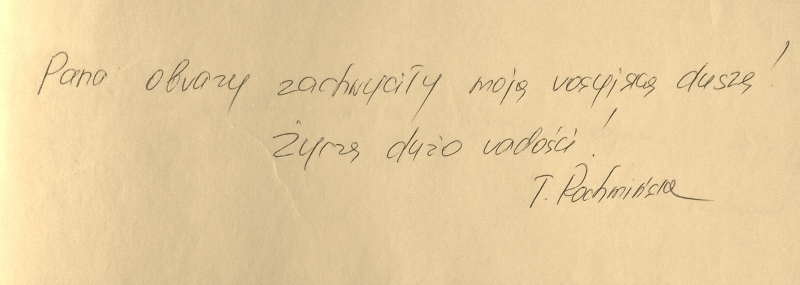 Pana obrazy zachwyciły moją rosyjską duszę!
Życzę dużo radości!
T. Rachmińska